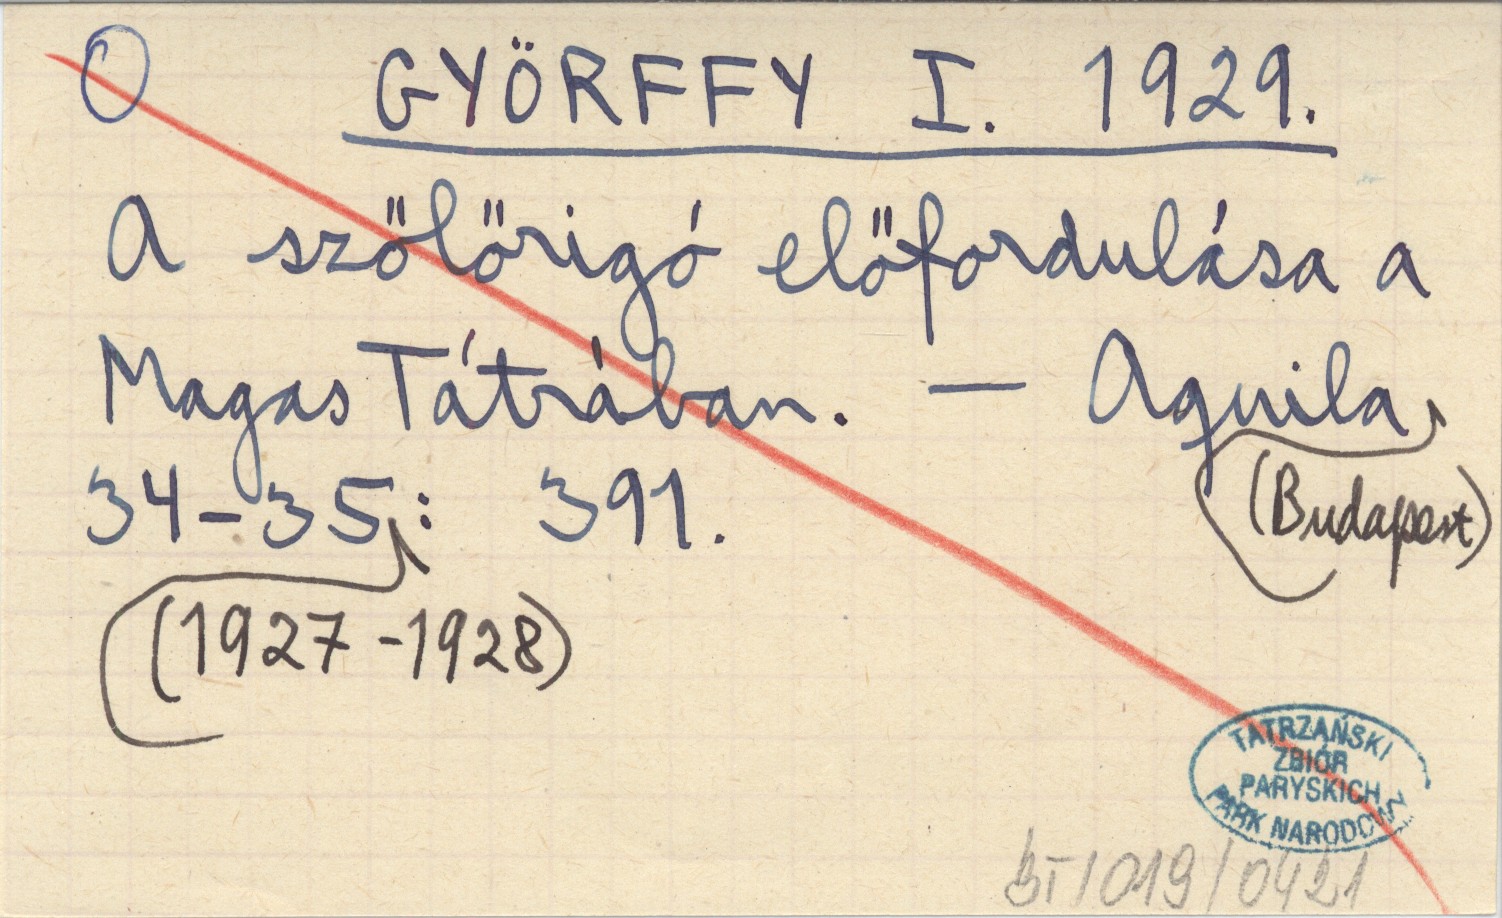 O GYÖRFFY I. 1929.
A szőlőrigó előfordulása a
Magas Tátrában. — Aquila
34-35: 391. (Budapest)
(1927-1928)
TATRZAŃSKI
ZBIÓR
PARYSKICH
PARK NARODOWY
BT/019/0421